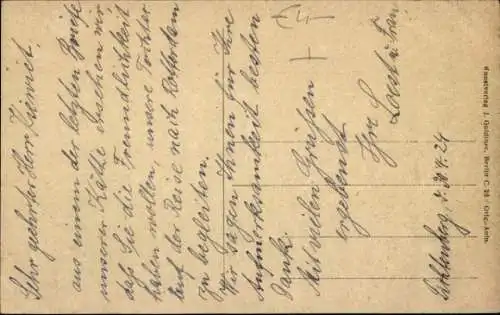 Sehr geehrter Herr Kiewiet.
aus einem der letzten Briefe
unserer Käthe ersehen wir,
daß Sie die Freundlichkeit
haben wollen, unsere Tochter
auf der Reise nach Rotterdam
zu begleiten.
Wir sagen Ihnen für Ihre
Aufmerksamkeit besten
Dank.
Mit vielen Grüßen
ergebenst
Ihre
u. Frau
4. 24
Kunstverlag J. Goldiner, Berlin C. 25 / Orig.-Aufn.